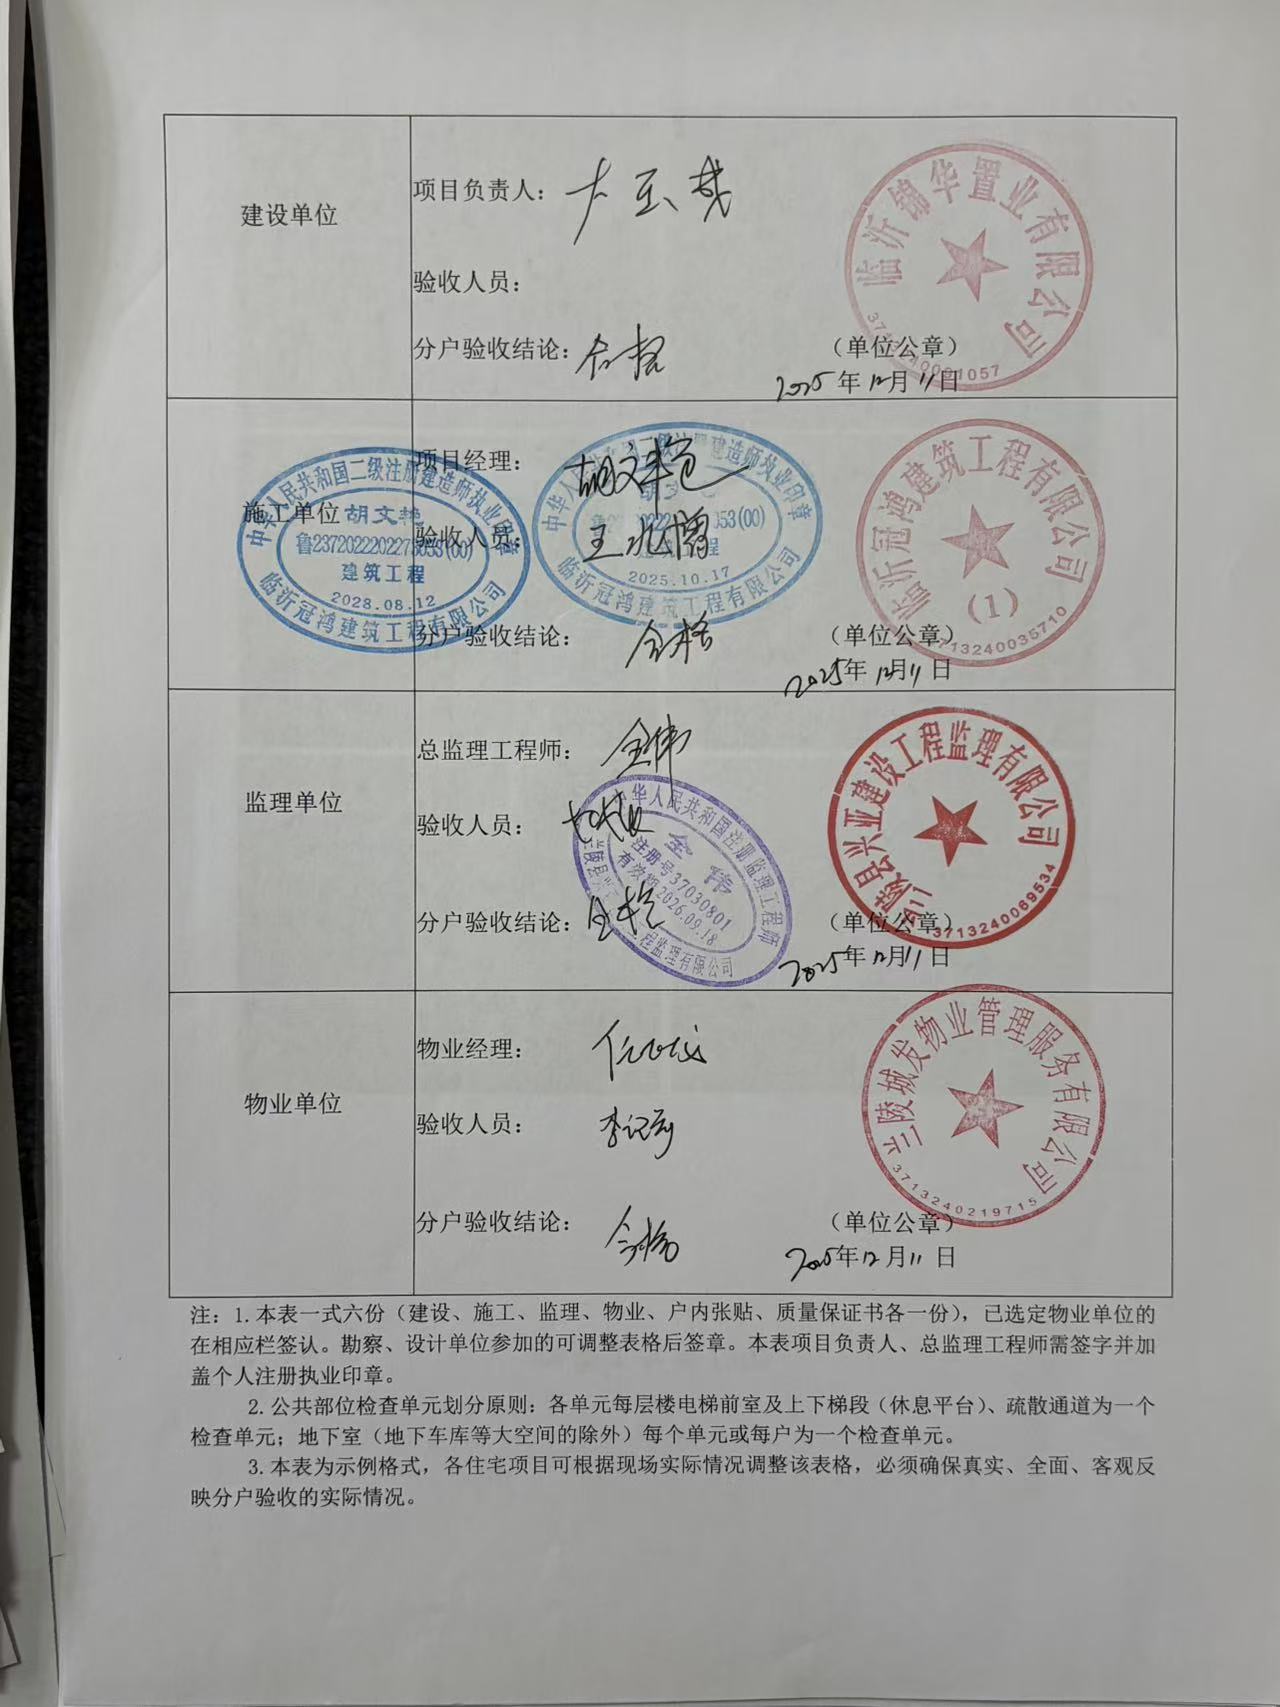 建设单位
项目负责人：
验收人员：
分户验收结论：合格
（单位公章）
2025年12月11日
临沂锦华置业有限公司
施工单位
项目经理：胡文艳
验收人员：
分户验收结论：合格
（单位公章）
2025年12月11日
中华人民共和国二级注册建造师执业印章
胡文艳
鲁2372022202273053(00)
建筑工程
2028.08.12
临沂冠鸿建筑工程有限公司
中华人民共和国二级注册建造师执业印章
建筑工程
2025.10.17
临沂冠鸿建筑工程有限公司
临沂冠鸿建筑工程有限公司
(1)
3713240035710
监理单位
总监理工程师：全伟
验收人员：
分户验收结论：合格
（单位公章）
2025年12月11日
中华人民共和国注册监理工程师
全伟
注册号37030801
有效期2026.09.18
工程监理有限公司
陵县兴亚建设工程监理有限公司
3713240069534
物业单位
物业经理：
验收人员：
分户验收结论：合格
（单位公章）
2025年12月11日
兰陵城发物业管理服务有限公司
3713240219715
注：1.本表一式六份（建设、施工、监理、物业、户内张贴、质量保证书各一份），已选定物业单位的
在相应栏签认。勘察、设计单位参加的可调整表格后签章。本表项目负责人、总监理工程师需签字并加
盖个人注册执业印章。
2.公共部位检查单元划分原则：各单元每层楼电梯前室及上下梯段（休息平台）、疏散通道为一个
检查单元；地下室（地下车库等大空间的除外）每个单元或每户为一个检查单元。
3.本表为示例格式，各住宅项目可根据现场实际情况调整该表格，必须确保真实、全面、客观反
映分户验收的实际情况。